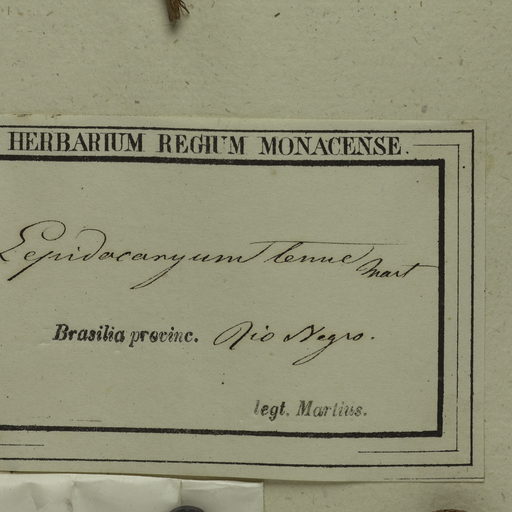 HERBARIUM REGIUM MONACENSE.
Lepidocaryum tenue Mart
Brasilia provinc. Rio Negro.
legt. Martius.